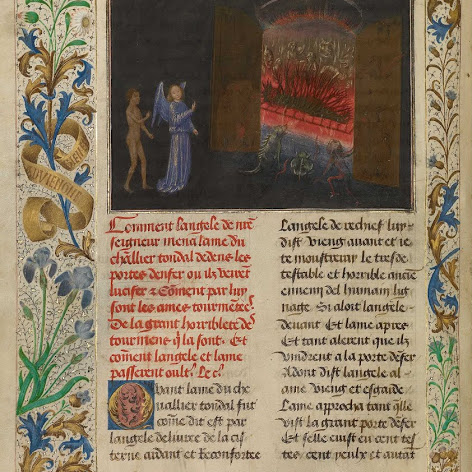 Comment langele de nr̃e
seigneur mena lame du
challier tondal dedens les
portes denfer ou ilz veirẽt
lucifer & Com̃ent par luy
sont les ames tourmẽtees
De la grant horriblete des
tourmens q̃ la sont. Et
com̃ent langele et lame
passerent oultr̃. Le c.
Quant lame du che
uallier tondal fut
com̃e dit est par
langele deliuree de la cis
terne aidant et Reconfortee
Langele de rechief luy
dist Vieng auant et ie
te monstreray le tresde
testable et horrible anciẽ
ennemj del humain lig
nage. Si aloit langele
deuant Et lame apres
Et tant alerent que ilz
vindrent a la porte dẽfer
Adont dist langele al
ame Vieng et esgarde
Lame approcha tant q̃lle
vist la grant porte dẽfer
Et selle euist eu cent tes
tes. cent yeulx et autãt